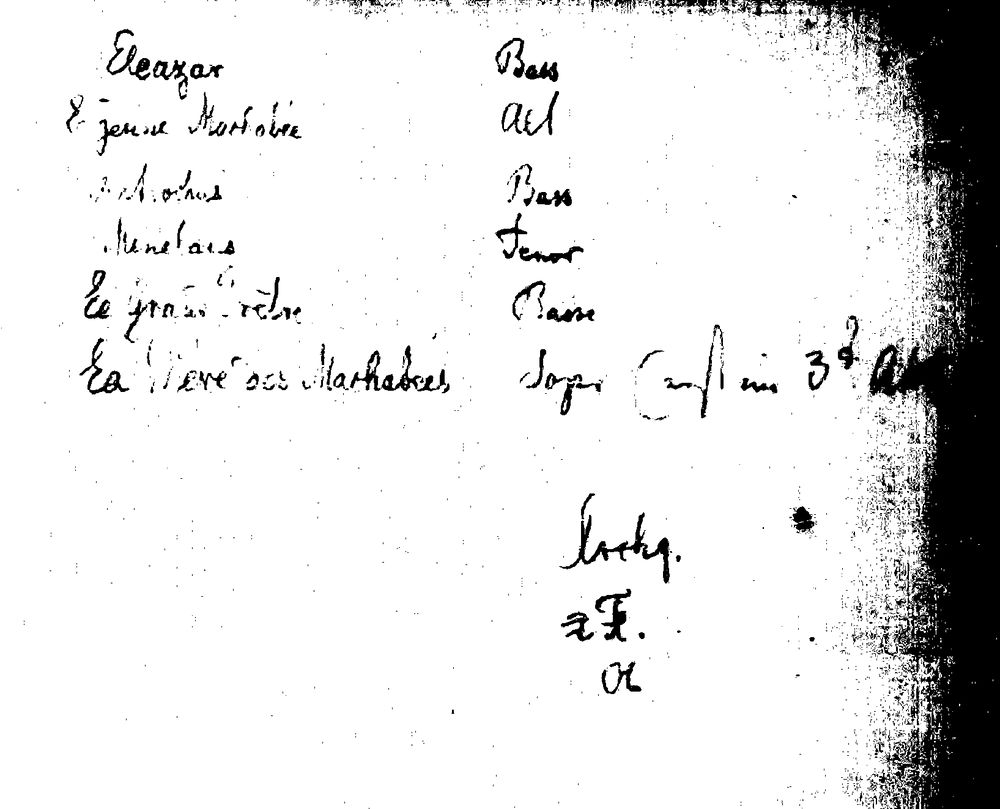 Eleazar Bass
jeune Makkabée Alt
Antiochus Bass
Menelaus Tenor
Le Grand Prêtre Basse
La Mère des Makkabées Sopr (auf im 3. Akt
Fl.
Ob